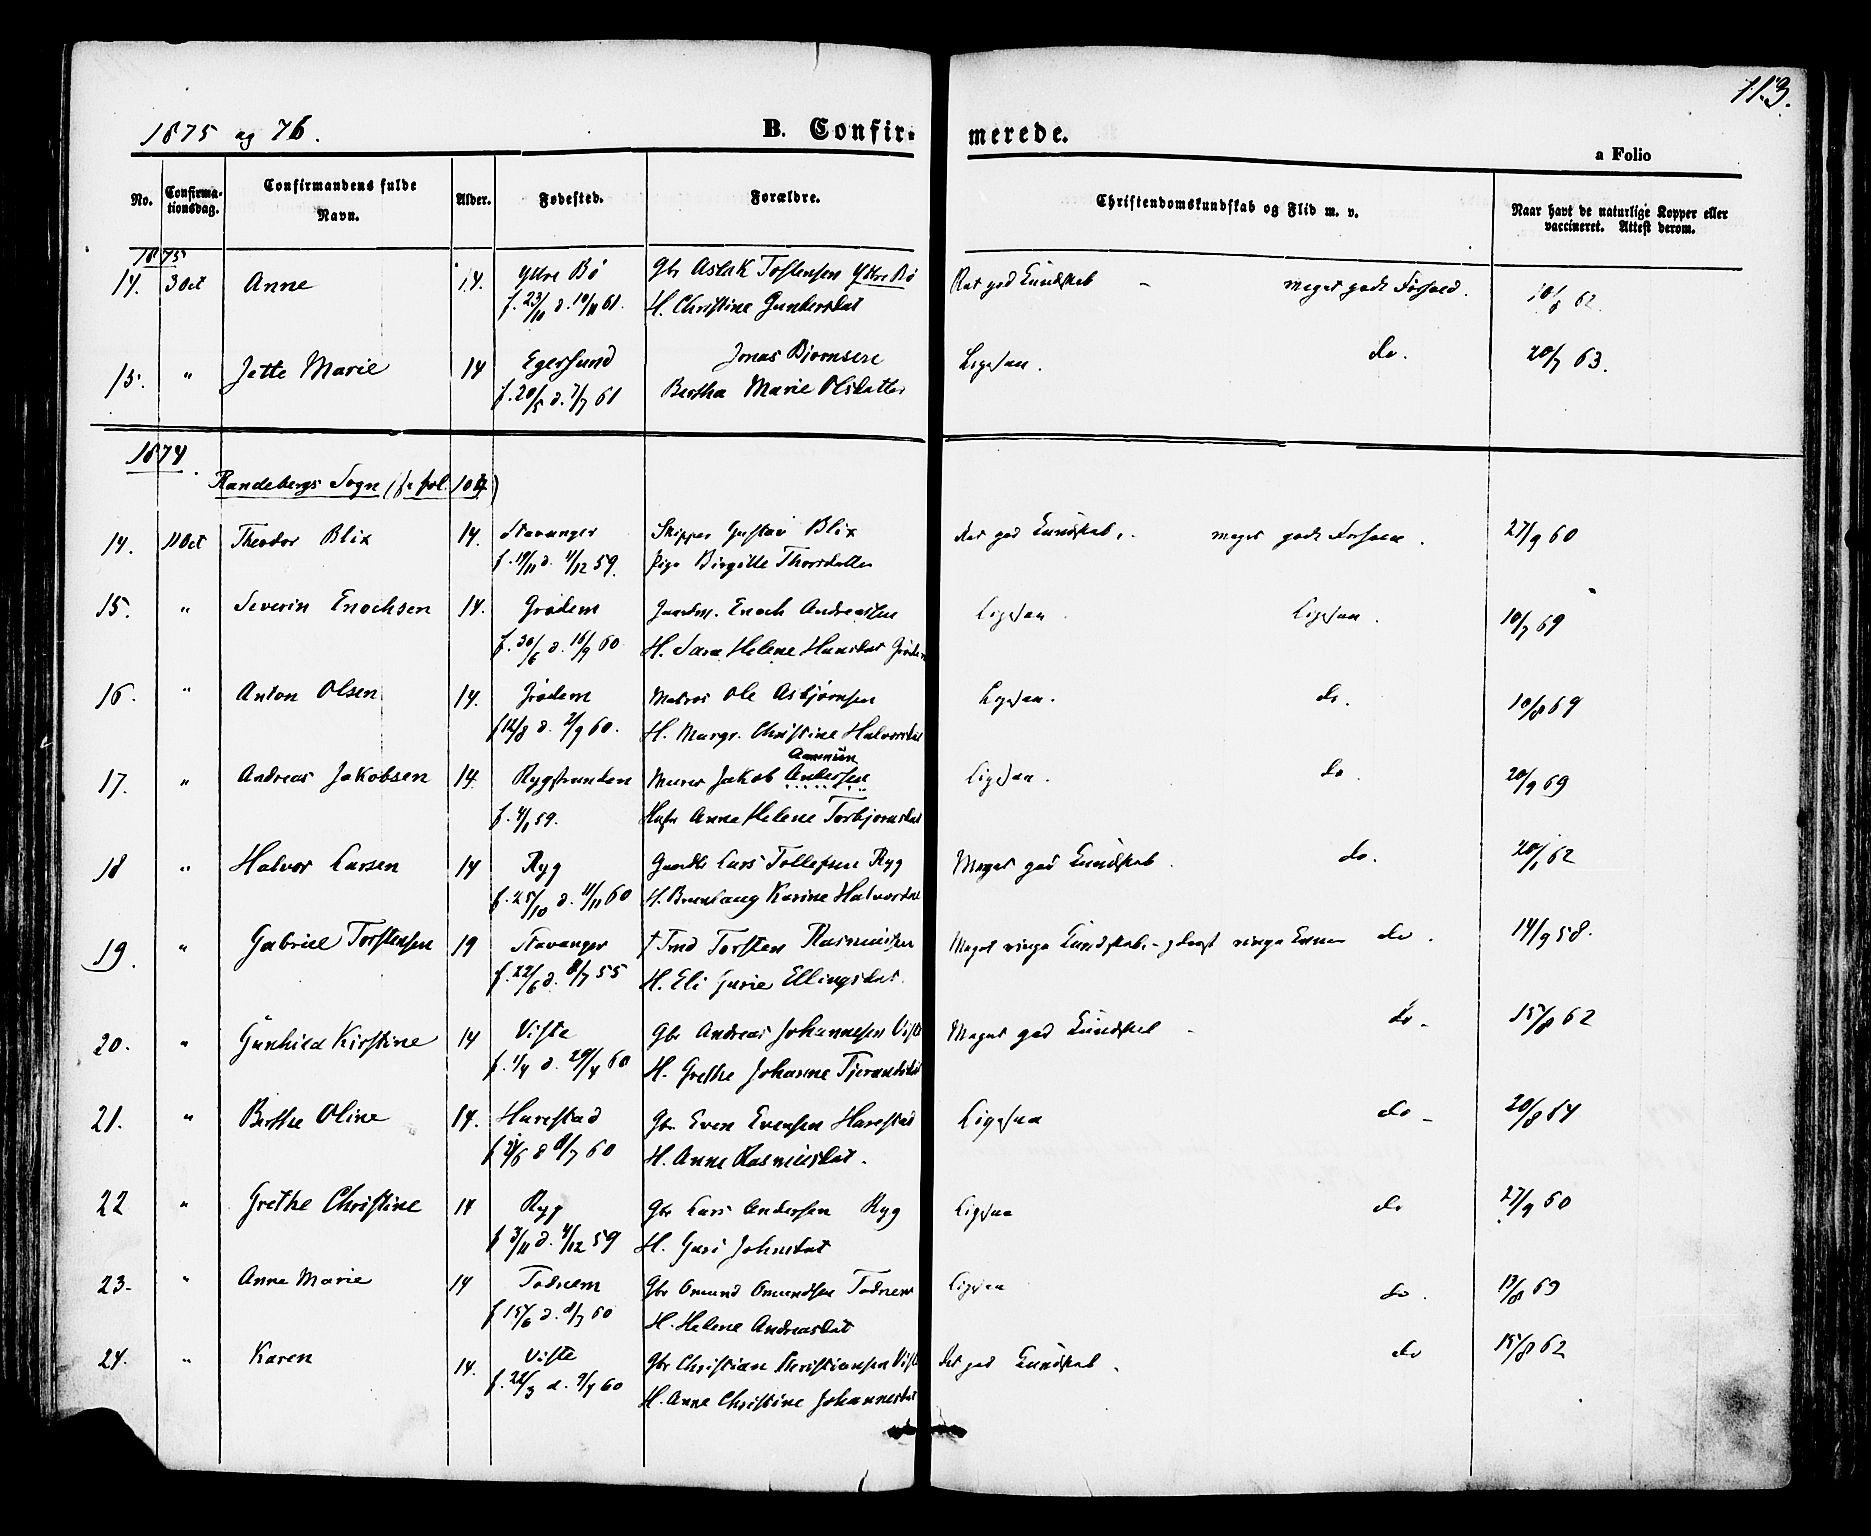 113.
1875 og 76.
B. Confir-
merede.
a Folio
No.
Confirma-
tionsdag.
Confirmandens fulde
Navn.
Alder.
Fødested.
Forældre.
Christendomskundskab og Flid m. v.
Naar havt de naturlige Kopper eller
vaccineret. Attest derom.
1875
14. 3 Oct Anne 14. Yttre Bø Gbr Aslak Tostensen Yttre Bø meget godt Forhold.
f. 23/10 d. 10/11 61. H. Christine Gundersdat
15. " Jette Marie 14 Egersund Jonas Bjørnsen Ligesaa. do. 20/7 63.
f. 20/5 d. 7/7 61 Bertha Marie Olsdatter
1874
Randebergs Sogn
14. 11 Oct Theodor Blix 14. Stavanger Skipper Gustav Blix Ret god Kundskab. meget godt Forhold. 27/9 60
Pige Birgitte Thorsdatter
15. " Severin Enochsen 14. Grødem Enoch Andreassen Ligesaa. Ligesaa. 10/7 69
f. 30/6 d. 16/9 60 H. Sara Helene Hansdat Grødem
16. " Anton Olsen 14. Grødem Matros Ole Asbjørnsen Ligesaa. do. 10/8 69
f 12/8 d. 2/9 60. H. Margr. Christine Halvorsdat
17. " Andreas Jakobsen 14. Rygstranden Murer Jakob Andersen Ligesaa. do. 20/9 69
Anne Helene Torbjørnsdat
18 " Halvor Larsen 14 Ryg Lars Tollefsen Ryg Meget god Kundskab. do. 20/1 62
f. 25/10 d. 11/11 60 Karine Halvorsdat
19. " Gabriel Torstensen 19 Stavanger Torsten Rasmussen Meget ringe Kundskab ringe Evner do. 14/9 58.
f. 22/6 d. 8/7 55 H. Eli Gurie Ellingsdat.
20. " Gunhild Kirstine 14 Viste Gbr Andreas Johannesen Viste Meget god Kundskab do. 15/8 62
f. 1/4 d. 29/4 60 H. Grethe Johanne Tjerandsdat
21. " Berthe Oline 14. Harestad Gbr. Even Evensen Harestad Ligesaa do 20/8 64
H. Anne Rasmusdat.
22 " Grethe Christine 14 Ryg Gbr Lars Andersen Ryg Ligesaa do 27/9 60
f 3/11 d. 4/12 59 H. Guri Johnsdat
23. " Anne Marie 14 Todnem Gbr Omund Omundsen Todnem Ligesaa do.
f 15/6 d. 8/7 60 H. Helene Andreasdat
24. " Karen 14. Viste Gbr Christian Christiansen Viste Ret god Kundskab. do 15/8 62
f. 22/3 d. 9/4 60 H. Anne Christine Johannesdat